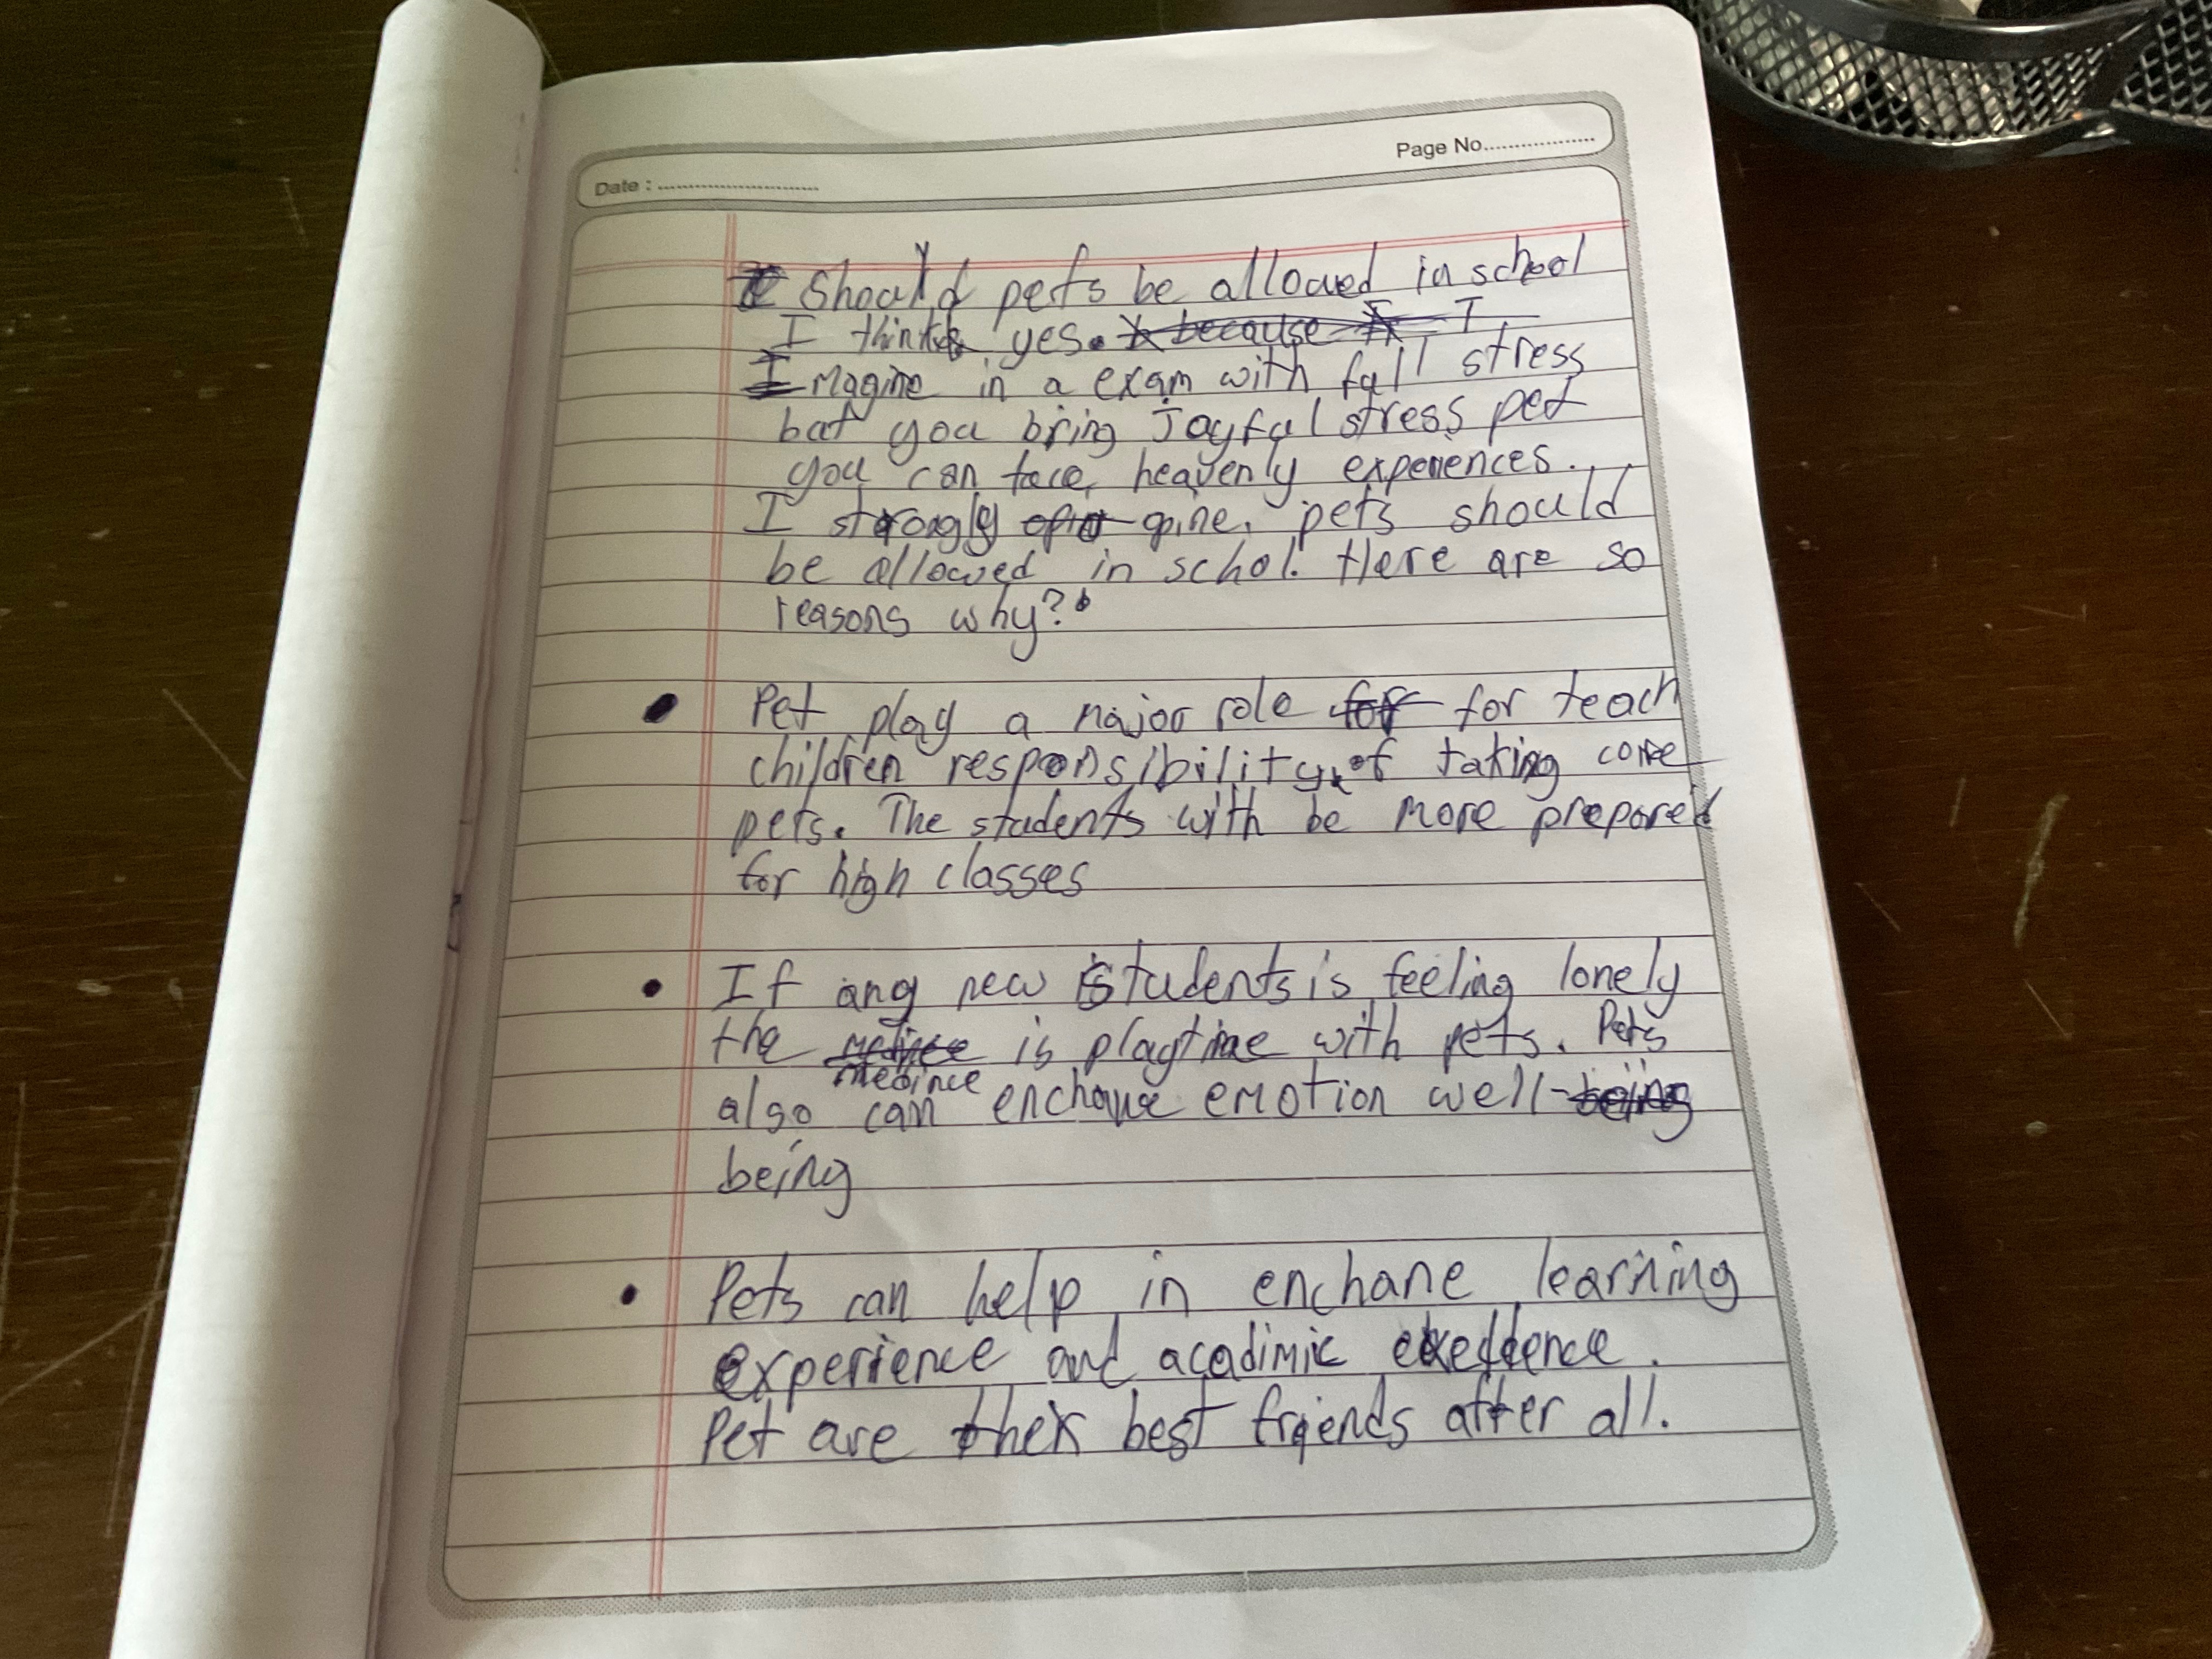 Date : ............................
Page No...................
Should pets be allowed in school
I think yes. because I
Imagine in a exam with full stress
but you bring joyful stress pet
you can face heavenly experiences.
I strongly opine, pets should
be allowed in schol. Here are so
reasons why?
• Pet play a major role for for teach
children responsibility of taking care
pets. The students with be more prepared
for high classes
• If any new students is feeling lonely
the medince is playtime with pets. Pets
also can enchance emotion well-being
being
• Pets can help in enchane learning
experience and acadimic
Pet are their best friends after all.